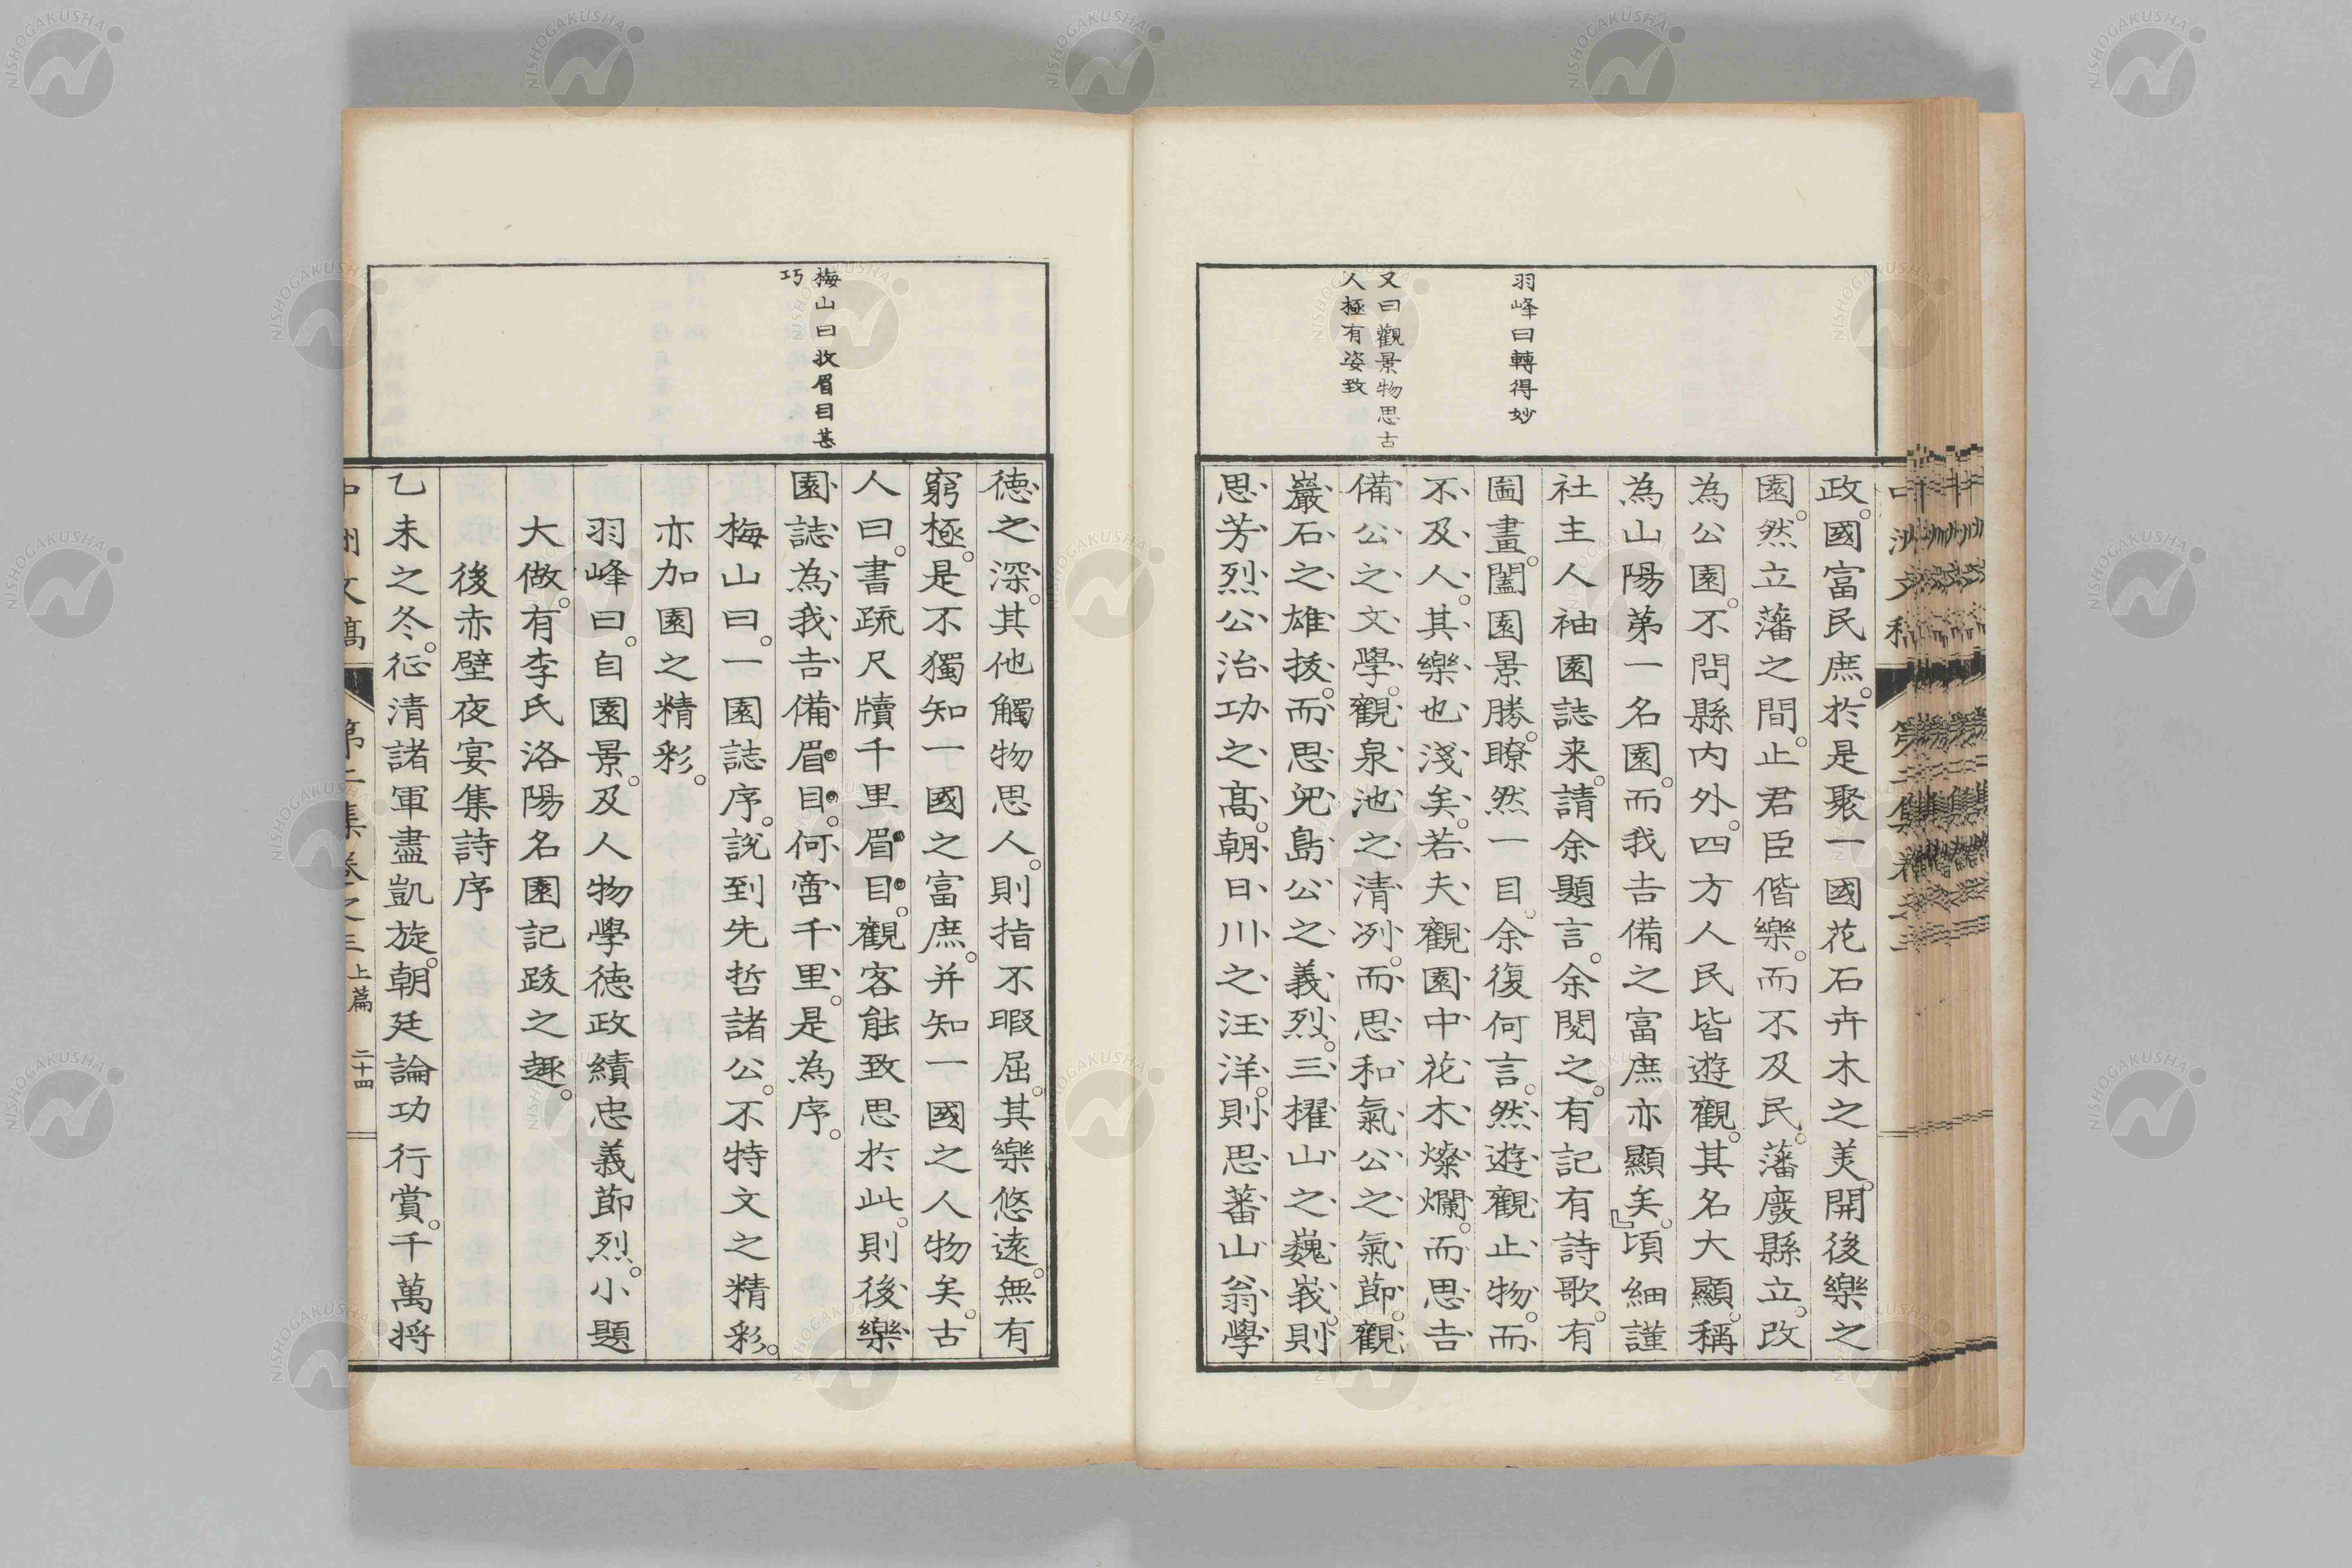 羽峰曰轉得妙
又曰觀景物思古
人極有姿致
政。國富民庶。於是聚一國花石卉木之美。開後樂之
園。然立藩之間。止君臣偕樂。而不及民。藩廢縣立。改
為公園。不問縣内外。四方人民皆遊觀。其名大顯。稱
為山陽第一名園。而我吉備之富庶亦顯矣。』頃細謹
社主人袖園誌来。請余題言。余閱之。有記有詩歌。有
圖畫。闔園景勝。瞭然一目。余復何言。然遊觀止物。而
不及人。其樂也淺矣。若夫觀園中花木燦爛。而思吉
備公之文學。觀泉池之清冽。而思和氣公之氣節。觀
巖石之雄拔。而思兒島公之義烈。三櫂山之巍峩。則
思芳烈公治功之高。朝日川之汪洋。則思蕃山翁學
梅山曰收眉目甚
巧
德之深。其他觸物思人。則指不暇屈。其樂悠遠。無有
窮極。是不獨知一國之富庶。并知一國之人物矣。古
人曰。書疏尺牘千里眉目。觀客能致思於此。則後樂
園誌為我吉備眉目。何啻千里。是為序。
梅山曰。一園誌序。說到先哲諸公。不特文之精彩。
亦加園之精彩。
羽峰曰。自園景。及人物學德政績忠義節烈。小題
大做。有李氏洛陽名園記跋之趣。
後赤壁夜宴集詩序
乙未之冬。征清諸軍盡凱旋。朝廷論功行賞。千萬将
第二集卷之三上篇 二十四